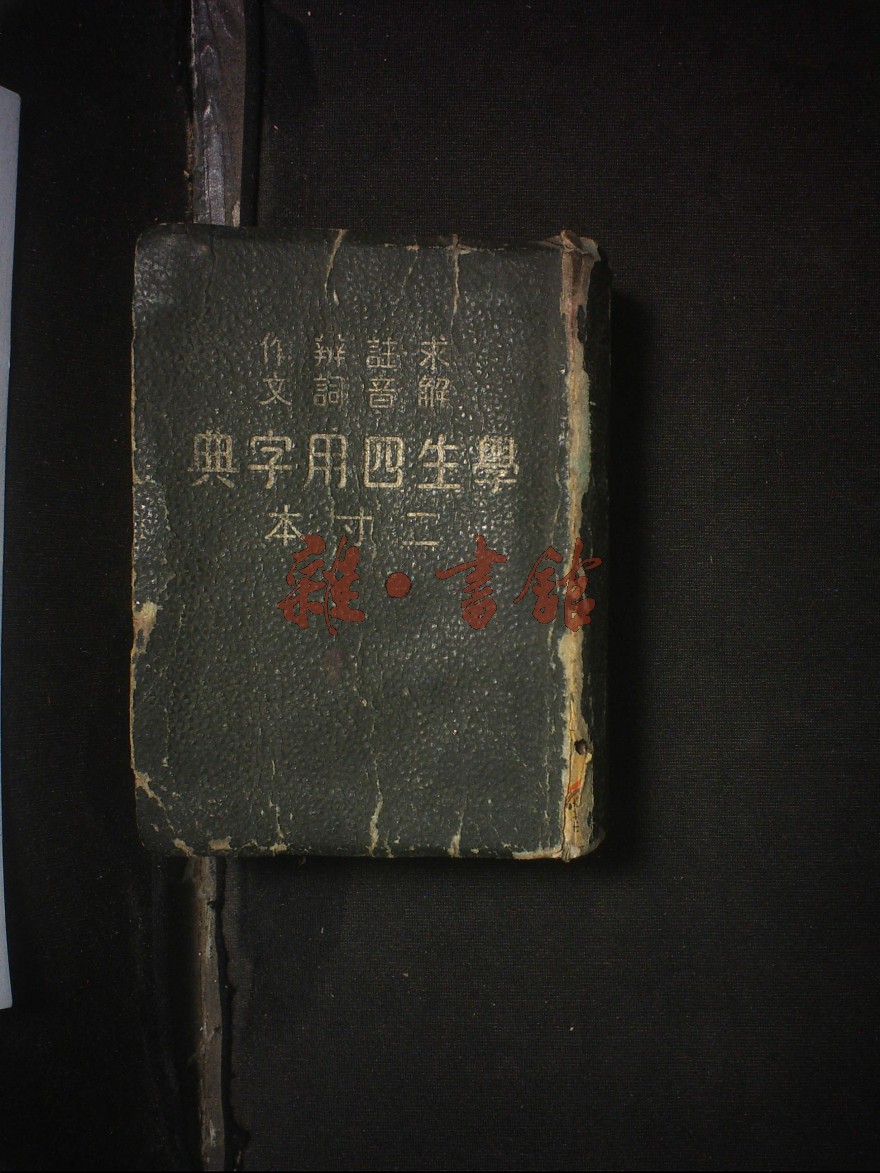 求解 註音 辨詞 作文
學生四用字典
二寸本
雜·書館